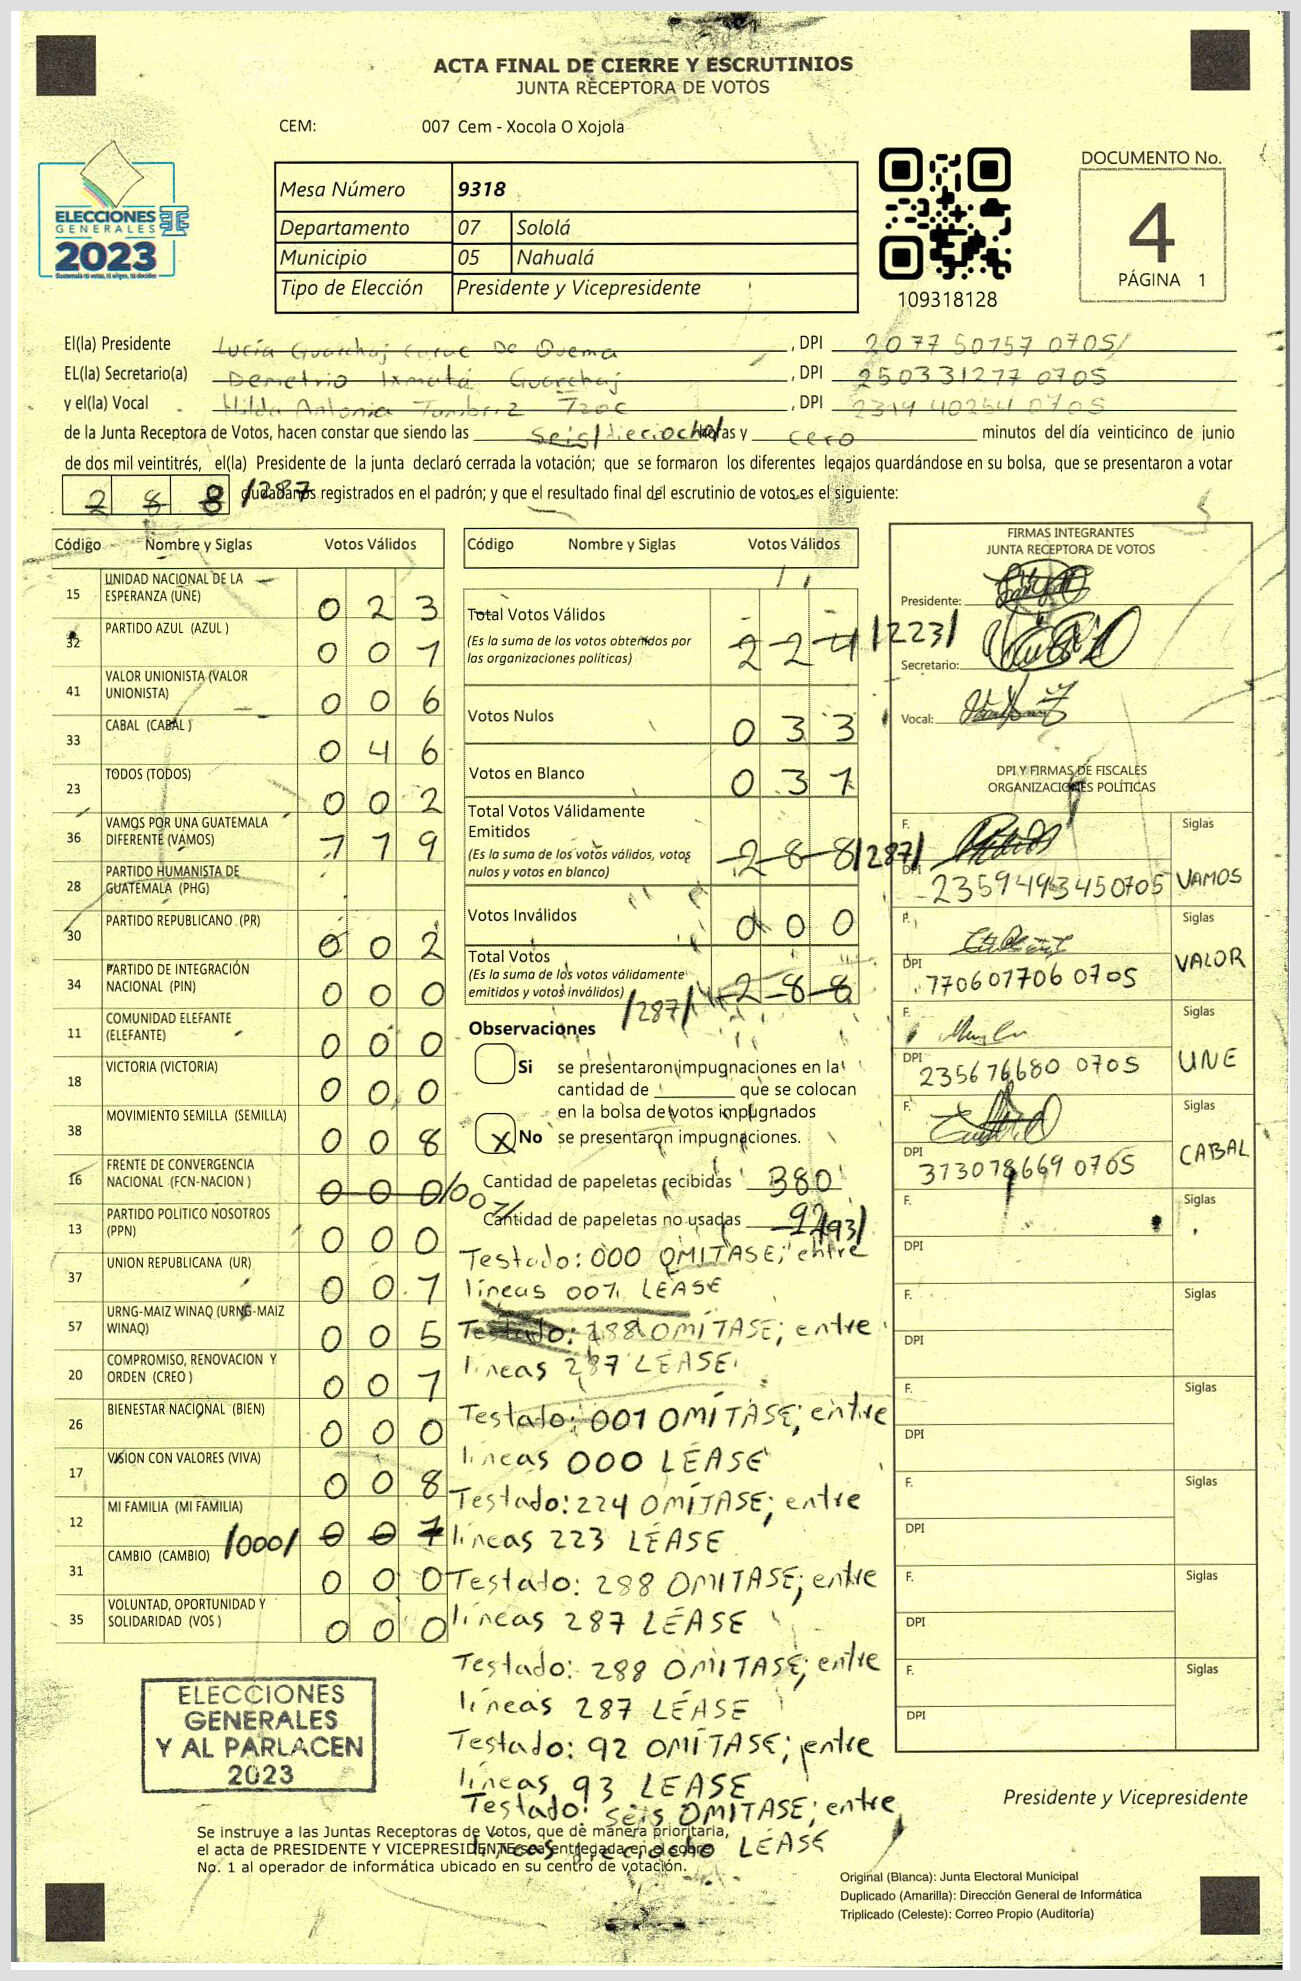 ACTA FINAL DE CIERRE Y ESCRUTINIOS
JUNTA RECEPTORA DE VOTOS
CEM: 007 Cem - Xocola O Xojola
ELECCIONES
GENERALES
2023
Mesa Número 9318
Departamento 07 Sololá
Municipio 05 Nahualá
Tipo de Elección Presidente y Vicepresidente
109318128
DOCUMENTO No.
4
PÁGINA 1
El(la) Presidente Lucía Guarchaj De , DPI 2077 50157 0705/
EL(la) Secretario(a) Demetrio Ixmatá Guarchaj , DPI 250331277 0705
y el(la) Vocal Hilda Antonia Tzoc , DPI 0705
de la Junta Receptora de Votos, hacen constar que siendo las seis/dieciocho/ horas y cero minutos del día veinticinco de junio
de dos mil veintitrés, el(la) Presidente de la junta declaró cerrada la votación; que se formaron los diferentes legajos guardándose en su bolsa, que se presentaron a votar
2 8 8 /287 ciudadanos registrados en el padrón; y que el resultado final del escrutinio de votos es el siguiente:
Código Nombre y Siglas Votos Válidos
15 UNIDAD NACIONAL DE LA ESPERANZA (UNE) 0 2 3
32 PARTIDO AZUL (AZUL ) 0 0 1
41 VALOR UNIONISTA (VALOR UNIONISTA) 0 0 6
33 CABAL (CABAL ) 0 4 6
23 TODOS (TODOS) 0 0 2
36 VAMOS POR UNA GUATEMALA DIFERENTE (VAMOS) 1 1 9
28 PARTIDO HUMANISTA DE GUATEMALA (PHG)
30 PARTIDO REPUBLICANO (PR) 0 0 2
34 PARTIDO DE INTEGRACIÓN NACIONAL (PIN) 0 0 0
11 COMUNIDAD ELEFANTE (ELEFANTE) 0 0 0
18 VICTORIA (VICTORIA) 0 0 0
38 MOVIMIENTO SEMILLA (SEMILLA) 0 0 8
16 FRENTE DE CONVERGENCIA NACIONAL (FCN-NACION ) 0 0 0 /001/
13 PARTIDO POLITICO NOSOTROS (PPN) 0 0 0
37 UNION REPUBLICANA (UR) 0 0 1
57 URNG-MAIZ WINAQ (URNG-MAIZ WINAQ) 0 0 5
20 COMPROMISO, RENOVACION Y ORDEN (CREO ) 0 0 1
26 BIENESTAR NACIONAL (BIEN) 0 0 0
17 VISION CON VALORES (VIVA) 0 0 8
12 MI FAMILIA (MI FAMILIA) /000/ 0 0 1
31 CAMBIO (CAMBIO) 0 0 0
35 VOLUNTAD, OPORTUNIDAD Y SOLIDARIDAD (VOS ) 0 0 0
Código Nombre y Siglas Votos Válidos
Total Votos Válidos 2 2 4 /223/
(Es la suma de los votos obtenidos por
las organizaciones políticas)
Votos Nulos 0 3 3
Votos en Blanco 0 3 1
Total Votos Válidamente
Emitidos 2 8 8 /287/
(Es la suma de los votos válidos, votos
nulos y votos en blanco)
Votos Inválidos 0 0 0
Total Votos 2 8 8
(Es la suma de los votos válidamente
emitidos y votos inválidos) /287/
Observaciones
Si se presentaron impugnaciones en la
cantidad de que se colocan
en la bolsa de votos impugnados
X No se presentaron impugnaciones.
Cantidad de papeletas recibidas 380
Cantidad de papeletas no usadas 92 /93/
Testado: 000 OMITASE; entre
líneas 001 LEASE
Testado: 288 OMÍTASE; entre
líneas 287 LÉASE
Testado: 001 OMÍTASE; entre
líneas 000 LÉASE
Testado: 224 OMÍTASE; entre
líneas 223 LÉASE
Testado: 288 OMITASE; entre
líneas 287 LÉASE
Testado: 288 OMITASE; entre
líneas 287 LÉASE
Testado: 92 OMÍTASE; entre
líneas 93 LEASE
Testado: seis OMITASE; entre
líneas dieciocho LÉASE
FIRMAS INTEGRANTES
JUNTA RECEPTORA DE VOTOS
Presidente:
Secretario:
Vocal:
DPI Y FIRMAS DE FISCALES
ORGANIZACIONES POLÍTICAS
F. Siglas
DPI 2359493450705 VAMOS
F. Siglas
DPI 770607706 0705 VALOR
F. Siglas
DPI 235676680 0705 UNE
F. Siglas
DPI 373078669 0705 CABAL
F. Siglas
DPI
F. Siglas
DPI
F. Siglas
DPI
F. Siglas
DPI
F. Siglas
DPI
F. Siglas
DPI
ELECCIONES
GENERALES
Y AL PARLACEN
2023
Presidente y Vicepresidente
Se instruye a las Juntas Receptoras de Votos, que de manera prioritaria,
el acta de PRESIDENTE Y VICEPRESIDENTE sea entregada en el sobre
No. 1 al operador de informática ubicado en su centro de votación.
Original (Blanca): Junta Electoral Municipal
Duplicado (Amarilla): Dirección General de Informática
Triplicado (Celeste): Correo Propio (Auditoría)